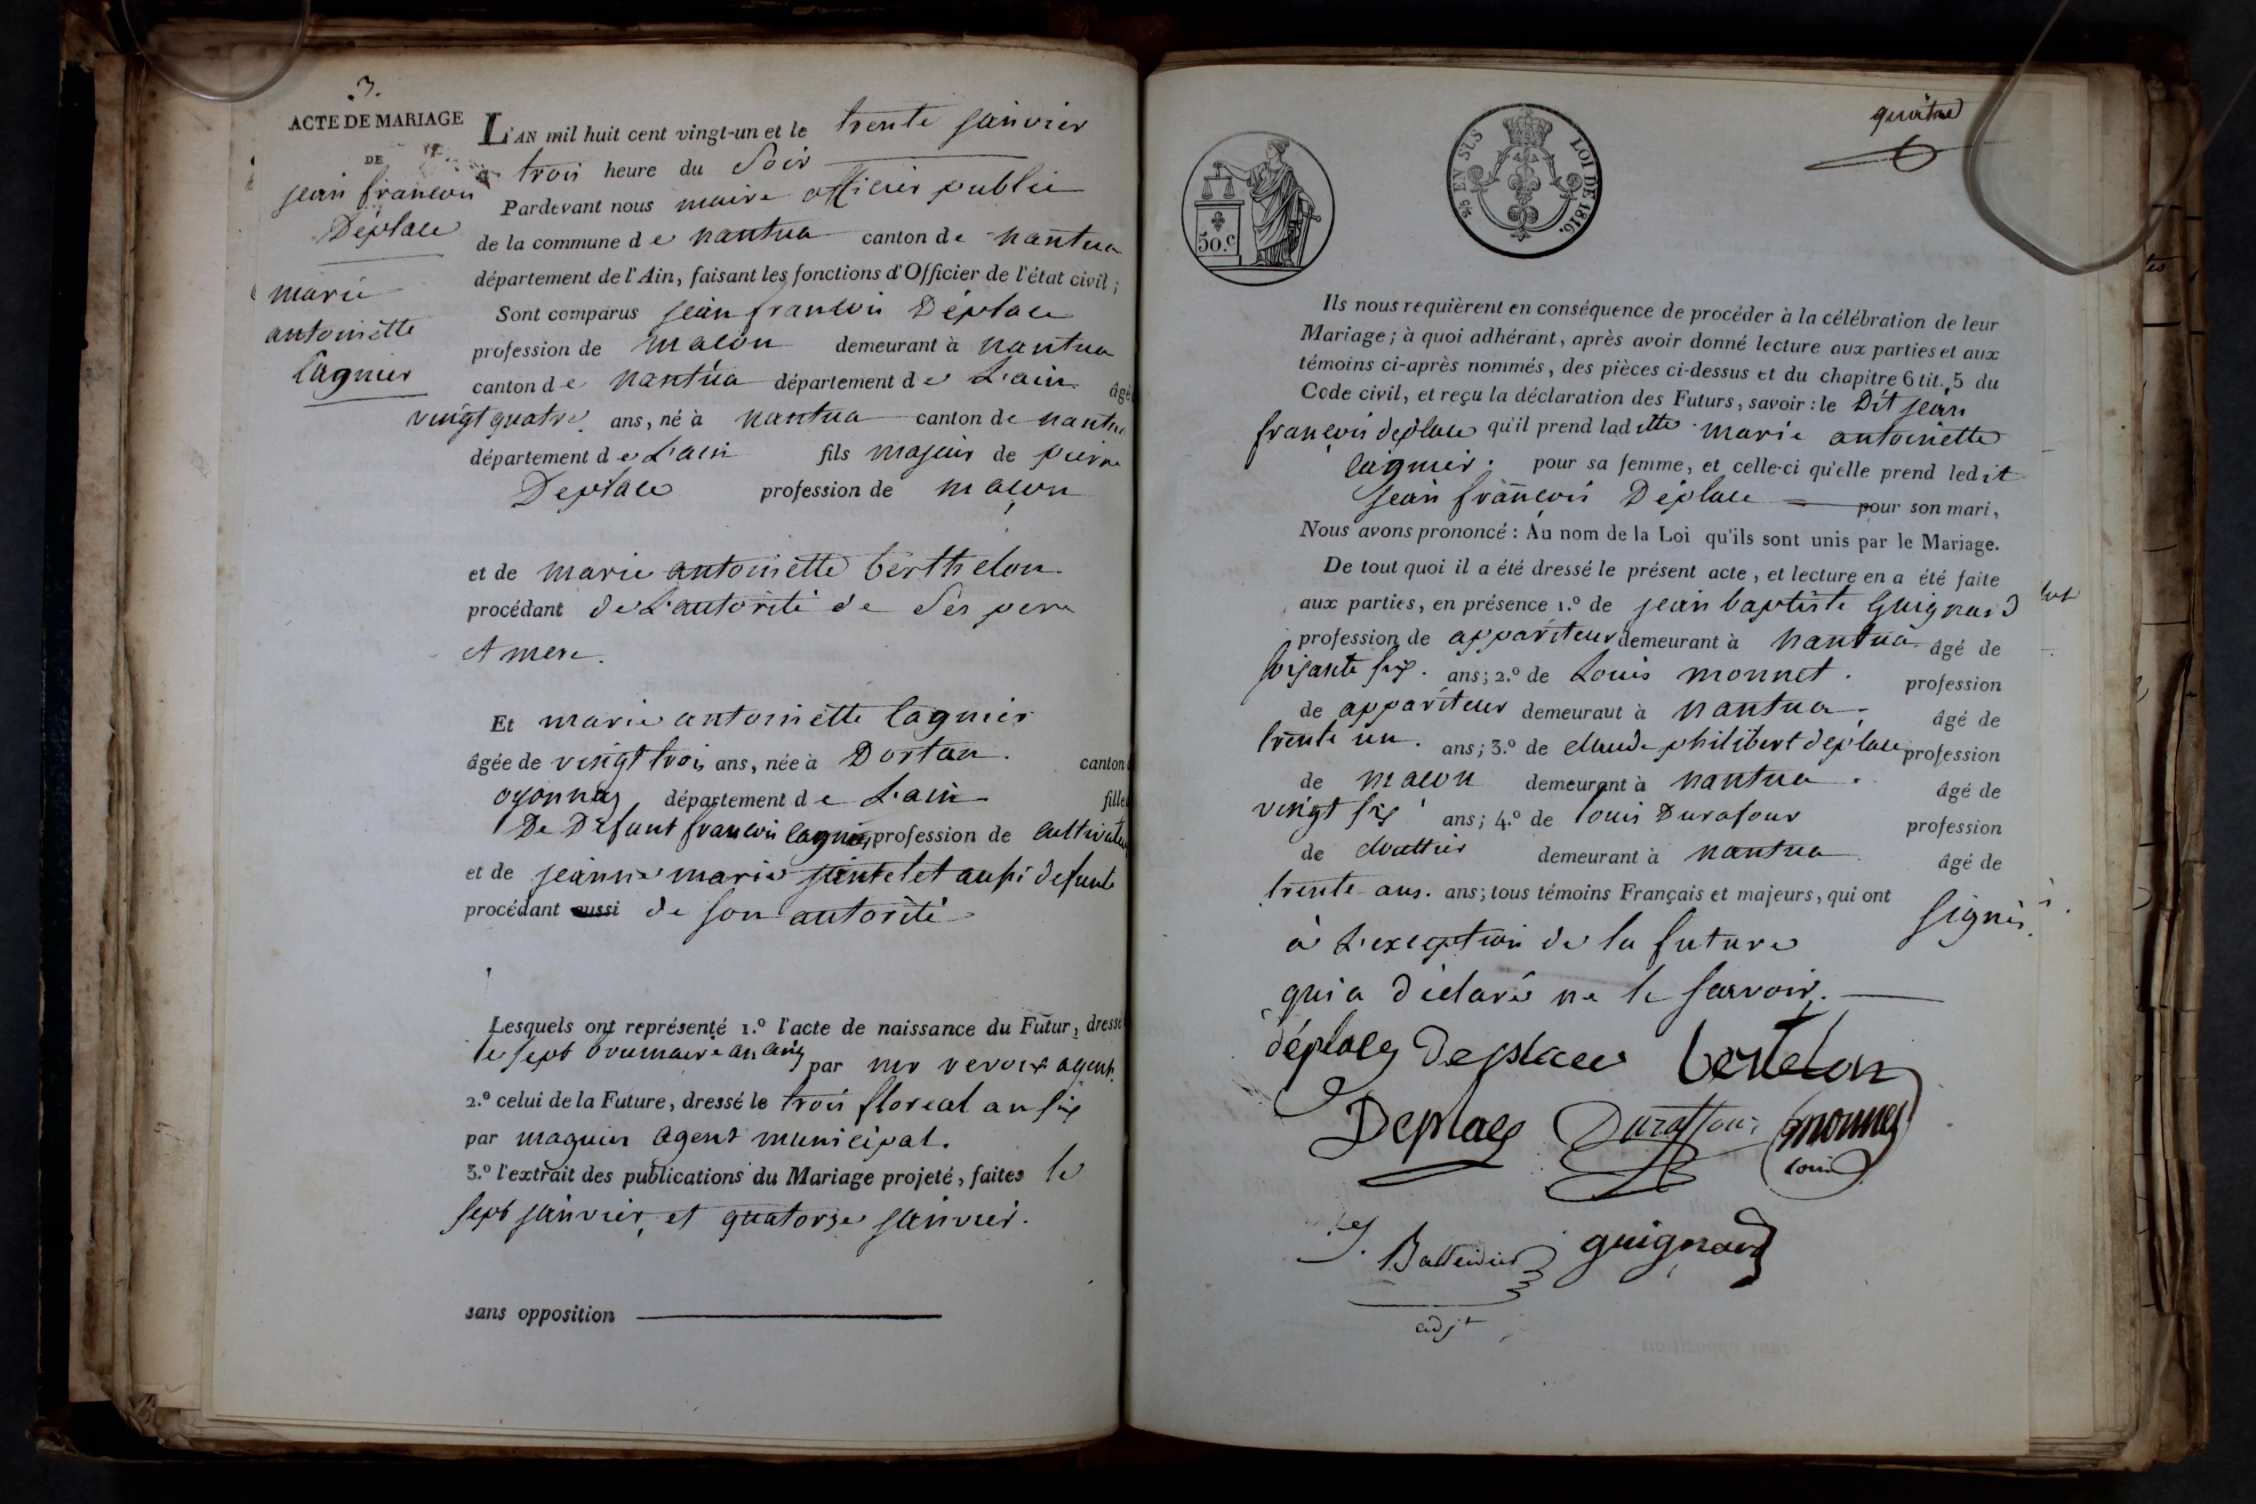 3.
ACTE DE MARIAGE
DE
jean francois
Déplace
marie
antoinette
Lagnier
L'AN mil huit cent vingt-un et le trente janvier
a trois heure du Soir
Pardevant nous maire officier public
de la commune de nantua canton de nantua
département de l'Ain, faisant les fonctions d'Officier de l'état civil;
Sont comparus jean francois Déplace
profession de macon demeurant à nantua
canton de nantua département de L'ain âgé
vingt quatre ans, né à nantua canton de nantua
département de L'ain fils majeur de pierre
Deplace profession de maçon
et de marie antoinette berthelon
procédant de L'autorité de Ses pere
et mere.
Et marie antoinette lagnier
âgée de vingt trois ans, née à Dortan. canton
oyonnaz département de L'ain fille
De Défunt francois lagnier profession de cultivateur
et de jeanne marie jantelet aussi defunte
procédant aussi de son autorité
Lesquels ont représenté 1.º l'acte de naissance du Futur, dressé
le sept brumaire an cinq par mr agent
2.º celui de la Future, dressé le trois floreal an six
par maguin agent municipal.
3.º l'extrait des publications du Mariage projeté, faites le
sept janvier et quatorze janvier.
sans opposition
quatre
50.C
25 EN SUS LOI DE 1816.
Ils nous requièrent en conséquence de procéder à la célébration de leur
Mariage; à quoi adhérant, après avoir donné lecture aux parties et aux
témoins ci-après nommés, des pièces ci-dessus et du chapitre 6 tit. 5 du
Code civil, et reçu la déclaration des Futurs, savoir: le Dit jean
françois deplace qu'il prend ladette marie antoinette
lagnier. pour sa femme, et celle-ci qu'elle prend ledit
jean françois Déplace pour son mari,
Nous avons prononcé: Au nom de la Loi qu'ils sont unis par le Mariage.
De tout quoi il a été dressé le présent acte, et lecture en a été faite
aux parties, en présence 1.º de jean baptiste Guignard
profession de appariteur demeurant à nantua âgé de
soisante six. ans; 2.º de Louis monnet. profession
de appariteur demeuraut à nantua. âgé de
trente un. ans; 3.º de claude philibert deplace profession
de macon demeurant à nantua. âgé de
vingt six ans; 4.º de louis Durafour profession
de cloutier demeurant à nantua âgé de
trente ans. ans; tous témoins Français et majeurs, qui ont signés
à L'exception de la future
qui a déclaré ne le savoir.
déplace Deplace bertelon
Deplace Duraffour monnet
louis
guignard
adjt